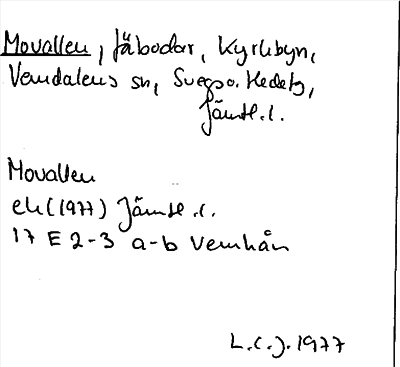 Movallen, fäbodar, Kyrkbyn,
Vemdalens sn, Svegs o. Hedeb,
Jämtl.l.
Movallen
ek (1977) Jämtl.l.
17 E 2-3 a-b Vemhån
L.C.J. 1977